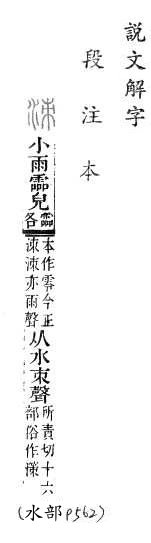 說文解字
段注本
洓 小雨霝皃霝各本作零今正洓洓亦雨聲从水朿聲所責切十六部俗作
(水部p562)